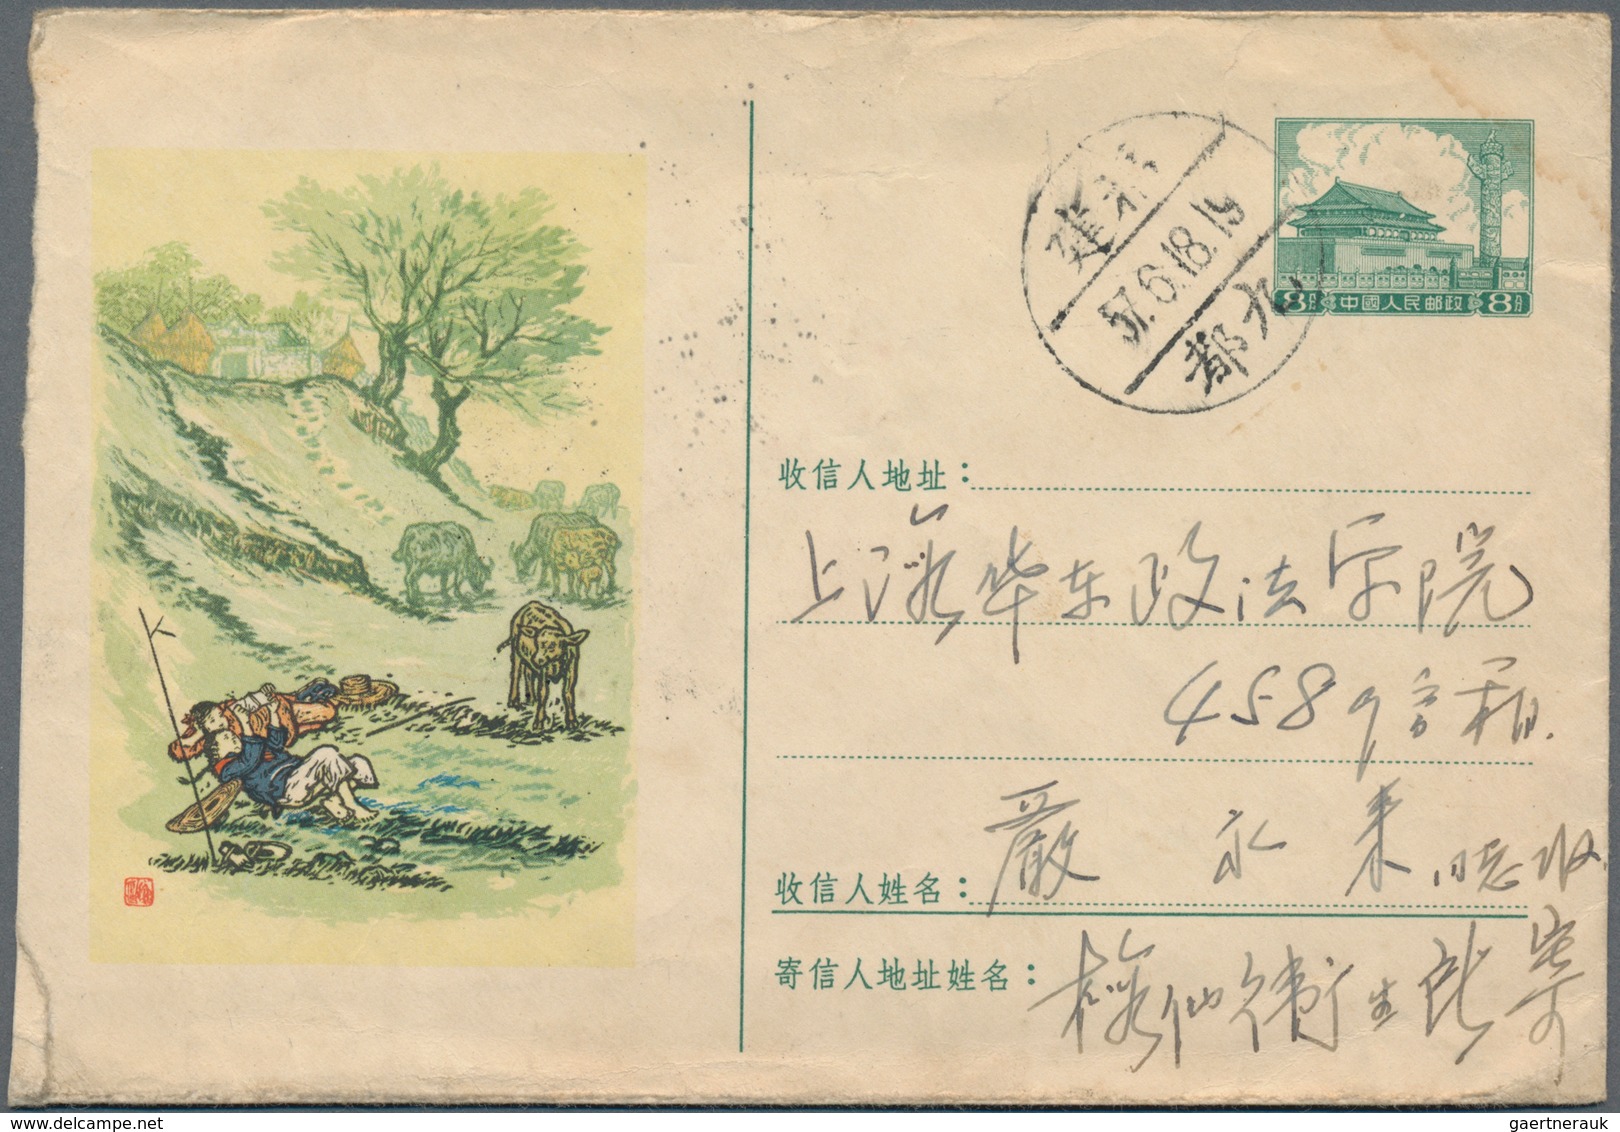 福建
57.6.18.19
水都
8分 中國人民邮政 8分
收信人地址：
上海华东政法学院
458号信箱.
收信人姓名：
嚴永来 同志收
寄信人地址姓名：
梅仙衛生所寄
gaertnerauk